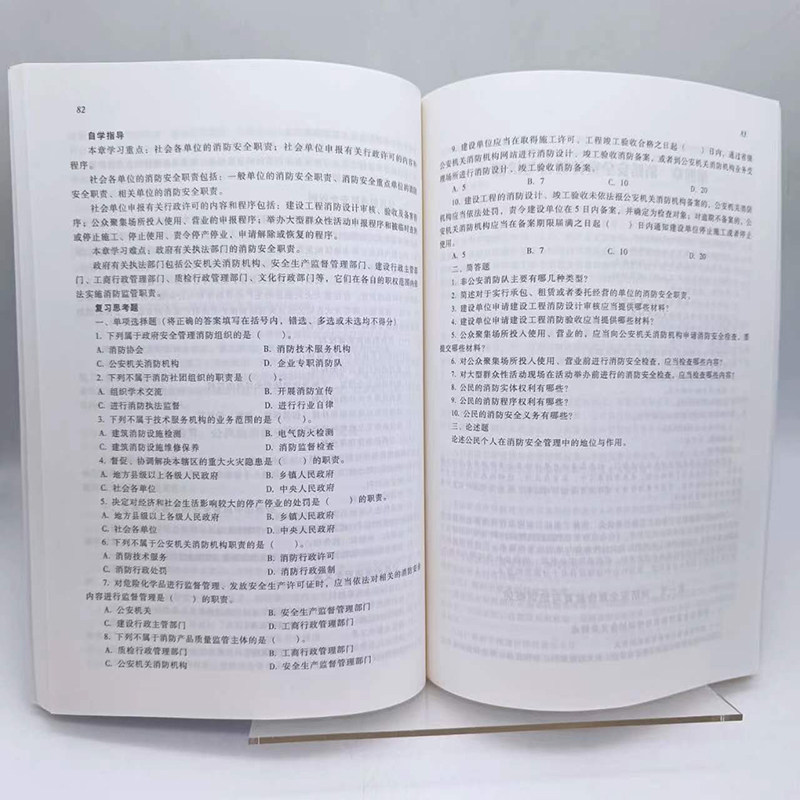 82
自学指导
本章学习重点：社会各单位的消防安全职责；社会单位申报有关行政许可的内容和
程序。
社会各单位的消防安全职责包括：一般单位的消防安全职责、消防安全重点单位的消防
安全职责、相关单位的消防安全职责。
社会单位申报有关行政许可的内容和程序包括：建设工程消防设计审核、验收及备案程
序；公众聚集场所投入使用、营业的申报程序；举办大型群众性活动申报程序和被临时查封
或停止施工、停止使用、责令停产停业，申请解除或恢复的程序。
本章学习难点：政府有关执法部门的消防安全职责。
政府有关执法部门包括公安机关消防机构、安全生产监督管理部门、建设行政主管部
门、工商行政管理部门、质检行政管理部门、文化行政部门等，它们在各自的职权范围内依
法实施消防监管职责。
复习思考题
一、单项选择题（将正确的答案填写在括号内，错选、多选或未选均不得分）
1. 下列属于政府安全管理消防组织的是（　）。
A. 消防协会 B. 消防技术服务机构
C. 公安机关消防机构 D. 企业专职消防队
2. 下列不属于消防社团组织的职责是（　）。
A. 组织学术交流 B. 开展消防宣传
C. 进行消防执法监督 D. 进行行业自律
3. 下列不属于技术服务机构的业务范围的是（　）。
A. 建筑消防设施检测 B. 电气防火检测
C. 建筑消防设施维修保养 D. 消防监督检查
4. 督促、协调解决本辖区的重大火灾隐患是（　）的职责。
A. 地方县级以上各级人民政府 B. 乡镇人民政府
C. 社会各单位 D. 中央人民政府
5. 决定对经济和社会生活影响较大的停产停业的处罚是（　）的职责。
A. 地方县级以上各级人民政府 B. 乡镇人民政府
C. 社会各单位 D. 中央人民政府
6. 下列不属于公安机关消防机构职责的是（　）。
A. 消防技术服务 B. 消防行政许可
C. 消防行政处罚 D. 消防行政强制
7. 对危险化学品进行监督管理、发放安全生产许可证时，应当依法对相关的消防安全
内容进行监督管理是（　）的职责。
A. 公安机关 B. 安全生产监督管理部门
C. 建设行政主管部门 D. 工商行政管理部门
8. 下列不属于消防产品质量监管主体的是（　）。
A. 质检行政管理部门 B. 工商行政管理部门
C. 公安机关消防机构 D. 安全生产监督管理部门
83
9. 建设单位应当在取得施工许可、工程竣工验收合格之日起（　）日内，通过省级
公安机关消防机构网站进行消防设计、竣工验收消防备案，或者到公安机关消防机构业务受
理场所进行消防设计、竣工验收消防备案。
A. 5 B. 7 C. 10 D. 20
10. 建设工程的消防设计、竣工验收未依法报公安机关消防机构备案的，公安机关消防
机构应当依法处罚，责令建设单位在 5 日内备案，并确定为检查对象；对逾期不备案的，公
安机关消防机构应当在备案期限届满之日起（　）日内通知建设单位停止施工或者停止
使用。
A. 5 B. 7 C. 10 D. 20
二、简答题
1. 非公安消防队主要有哪几种类型？
2. 简述对于实行承包、租赁或者委托经营的单位的消防安全职责。
3. 建设单位申请建设工程消防设计审核应当提供哪些材料？
4. 建设单位申请建设工程消防验收应当提供哪些材料？
5. 公众聚集场所投入使用、营业的，应当向公安机关消防机构申请消防安全检查，需
提交哪些材料？
6. 对公众聚集场所投入使用、营业前进行消防安全检查，应当检查哪些内容？
7. 对大型群众性活动现场在活动举办前进行的消防安全检查，应当检查哪些内容？
8. 公民的消防实体权利有哪些？
9. 公民的消防程序权利有哪些？
10. 公民的消防安全义务有哪些？
三、论述题
论述公民个人在消防安全管理中的地位与作用。